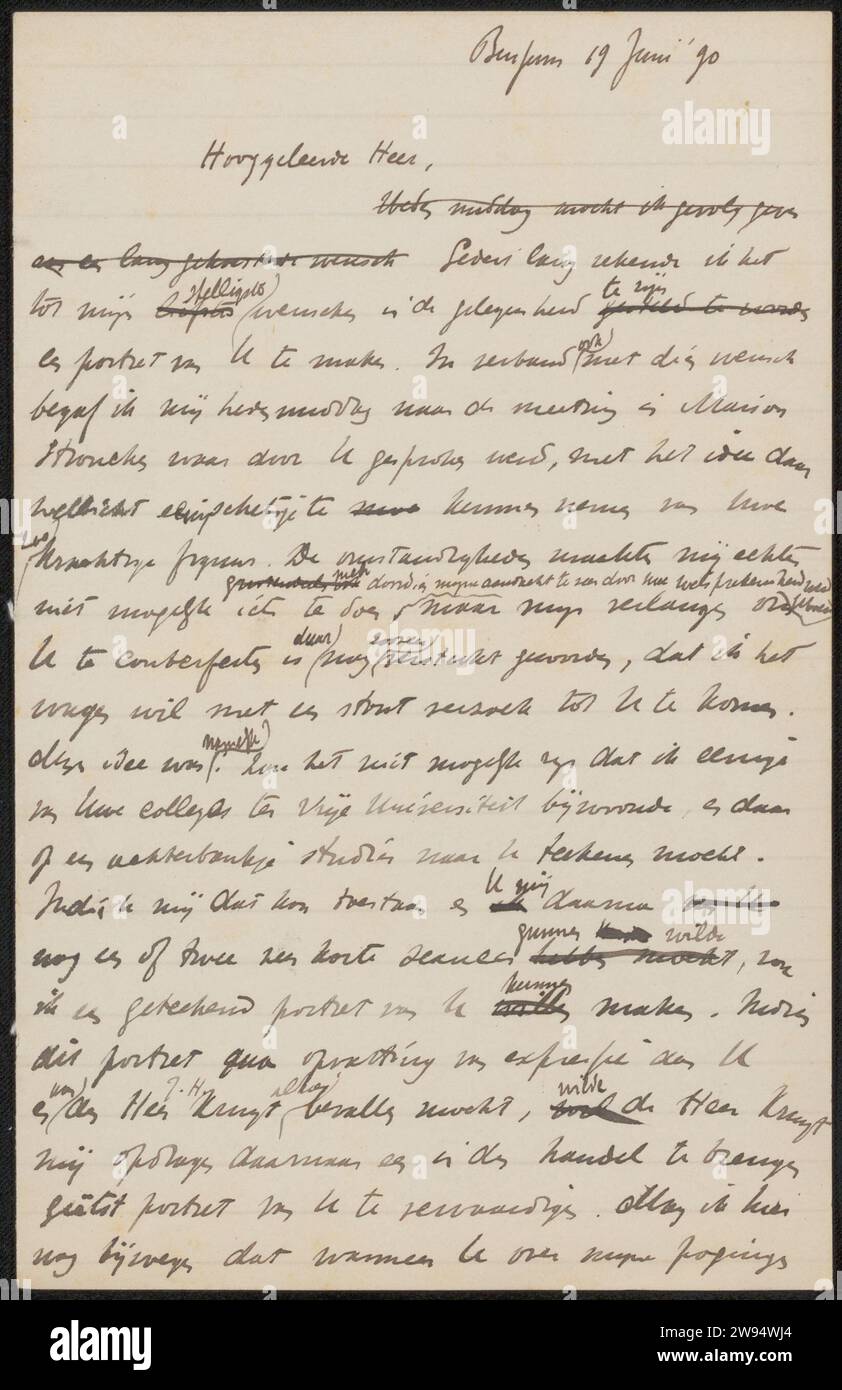 Bussum 19 Juni '90
Hooggeleerde Heer,
Heden middag mocht ik gevolg geven
aan een lang gekoesterde wensch Sedert lang rekende ik het
heiligste te zijn
tot mijn wenschen in de gelegenheid gesteld te worden
een portret van U te maken. In verband ook met dien wensch
begaf ik mij heden middag naar de meeting in Maison
Stroucken waar door U gesproken werd, met het idee daar
wellicht een schetsje te kunnen nemen van Uwe
zoo
krachtige figuur. De omstandigheden maakten mij echter
doordien mijne aandacht te zeer door Uwe welsprekendheid werd
niet mogelijk iets te doen maar mijn verlangen om
daar zoozeer
U te conterfeiten is nog versterkt geworden, dat ik het
wagen wil met een stout verzoek tot U te komen.
namelijk
Mijn idee was: Zou het niet mogelijk zijn dat ik eenige
van Uwe colleges ter Vrije Universiteit bijwoonde, en daar
op een achterbankje studies naar U teekenen mocht.
U mij
Indien U mij dat kon toestaan en ik daarna
gunnen wilde
nog een of twee zeer korte seances hebben mocht, zou
kunnen
ik een geteekend portret van U willen maken. Indien
dit portret qua opvatting van expressie dan U
J. H.
en den Heer Kruyt bevallen mocht,
wilde
de Heer Kruyt
mij opdragen daarnaar een in den handel te brengen
geëtst portret van U te vervaardigen. Mag ik hier
nog bijvoegen dat wanneer U over mijne pogingen
alamy
alamy
Image ID: 2W94WJ4
www.alamy.com